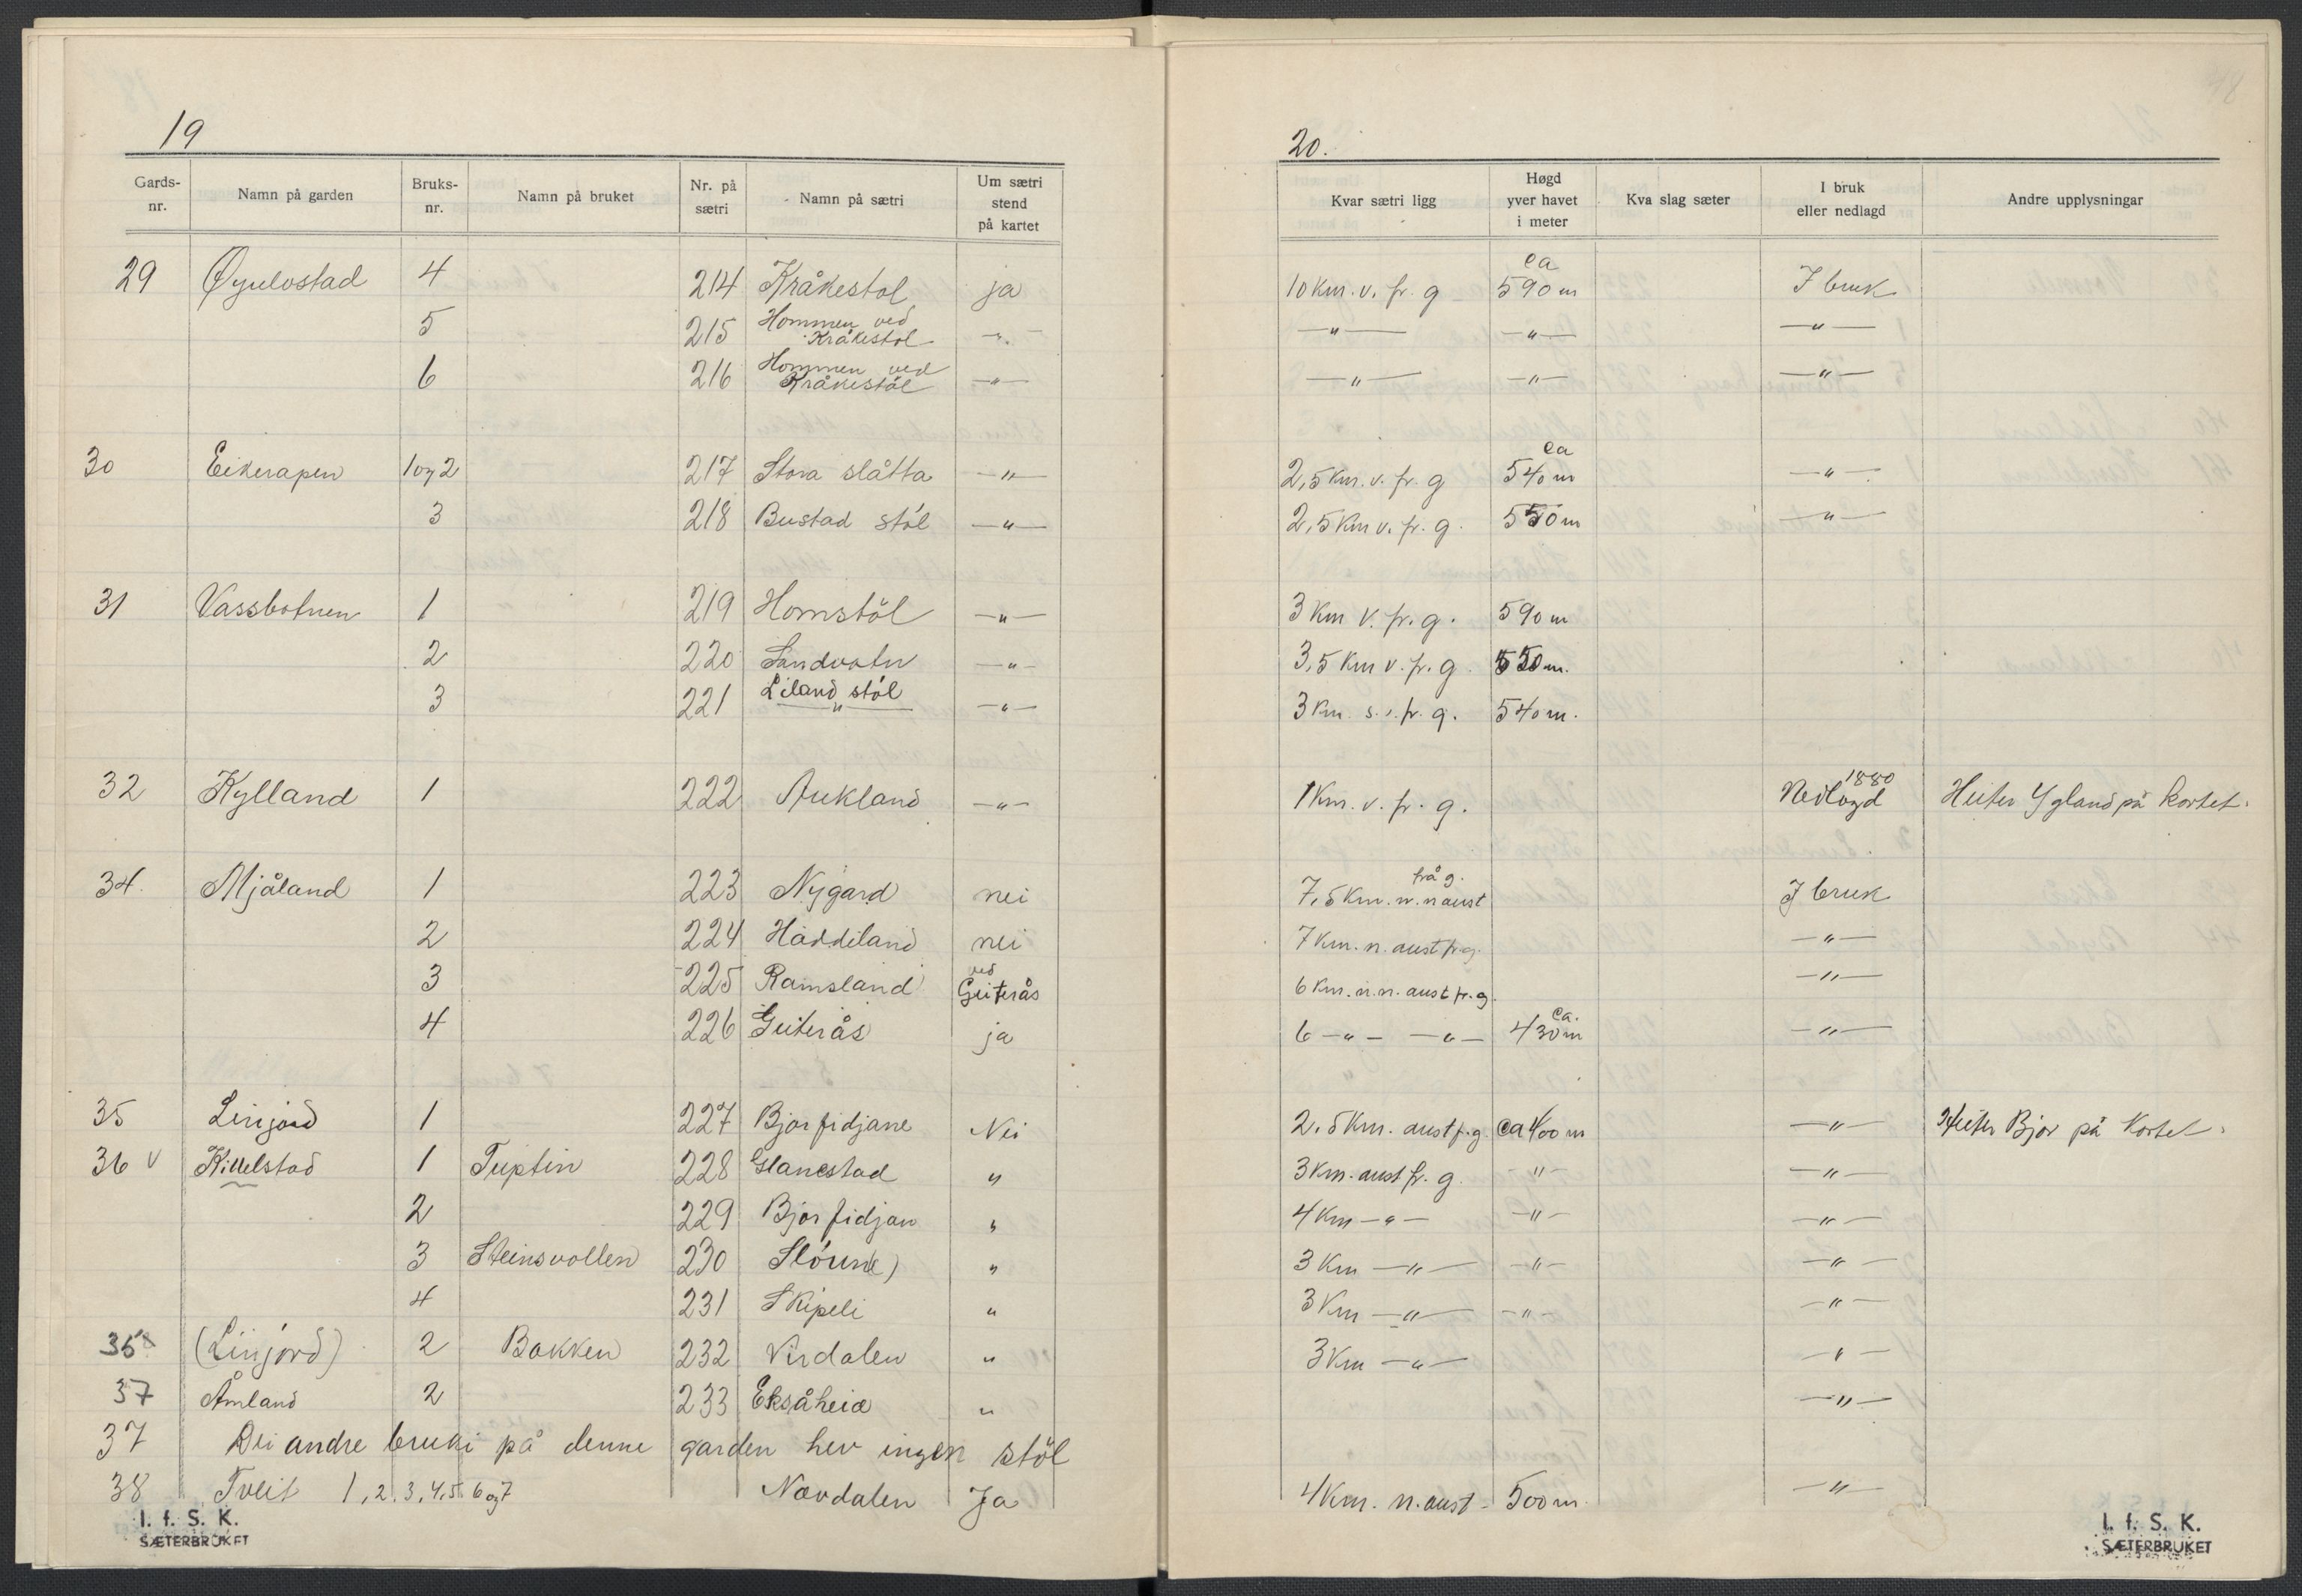 19
Gards-nr. Namn på garden Bruks-nr. Namn på bruket Nr. på sætri Namn på sætri Um sætri stend på kartet
29 Øyulvstad 4 214 Kråkestøl ja
5 215 Hommen ved Kråkestøl -"-
6 216 Hommen ved Kråkestøl -"-
30 Eikerapen 1 og 2 217 Stora slåtta -"-
3 218 Bustad støl -"-
31 Vassbotnen 1 219 Homstøl -"-
2 220 Sandvatn -"-
3 221 Liland støl -"-
32 Kylland 1 222 Aukland -"-
34. Mjåland 1 223 Nygard nei
2 224 Haddeland nei
3 225 Ramsland ved Geiterås
4 226 Geiterås ja
35 Linjord 1 227 Bjorfidjane Nei
36 v Kittelstad 1 Tuptin 228 Glanestad "
2 229 Bjorfidjan "
3 Steinsvollen 230 "
4 231 Skipeli "
35 (Linjord) 2 Bakken 232 Virdalen "
37 Åmland 2 233 Eksåheia "
37 Dei andre bruki på denne garden hev ingen støl
38 Tveit 1, 2, 3, 4, 5, 6 og 7 Navdalen Ja
I. f. S. K.
SÆTERBRUKET
20.
Kvar sætri ligg Høgd yver havet i meter Kva slag sæter I bruk eller nedlagd Andre upplysningar
10 Km. v. fr. g ca 590 m I bruk
-"- -"- -"-
-"- -"- -"-
2,5 Km. v. fr. g ca 540 m -"-
2,5 Km v. fr. g. 550 m -"-
3 Km v. fr. g. 590 m
3,5 Km v. fr. g. 550 m.
3 Km. s.v. fr. g. 540 m.
1 Km. v. fr. g. Nedlagd 1880 Heiter Ygland på kortet.
7,5 Km. n. naust frå g. I bruk
7 Km. n. aust fr. g. -"-
6 Km. n. n. aust fr. g. -"-
6 -"- -"- ca. 430 m -"-
2,5 Km. aust fr. g. ca 400 m -"- Heiter Bjor på Kortet.
3 Km. aust fr. g. -"- -"-
4 Km -"- -"- -"-
3 Km -"- -"- -"-
3 Km -"- -"- -"-
3 Km -"- -"-
-"-
4 Km. n. aust - 500 m. -"-
I. f. S. K.
SÆTERBRUKET